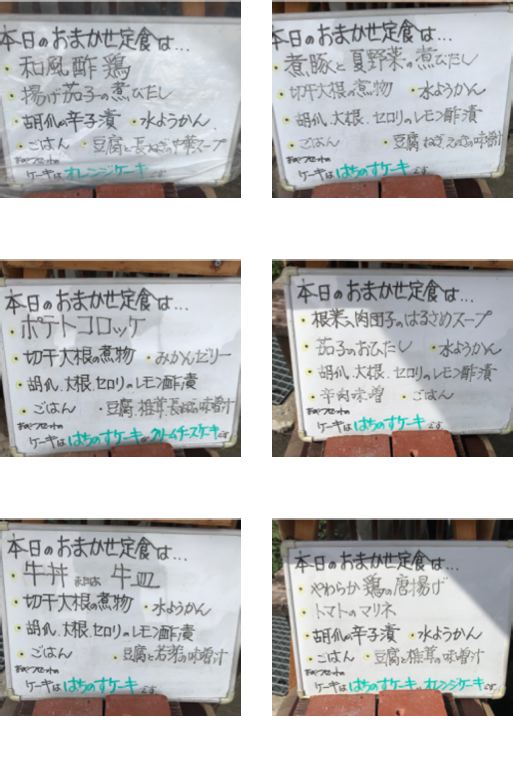 本日のおまかせ定食は...
和風酢鶏
揚げ茄子の煮びたし
胡瓜の辛子漬 水ようかん
ごはん 豆腐と長ねぎの中華スープ
おやつセットの
ケーキは オレンジケーキ です
本日のおまかせ定食は...
煮豚と夏野菜の煮びたし
切干大根の煮物 水ようかん
胡瓜、大根、セロリのレモン酢漬
ごはん 豆腐、ねぎ、えのきの味噌汁
おやつセットの
ケーキは はちのすケーキ です
本日のおまかせ定食は...
ポテトコロッケ
切干大根の煮物 みかんゼリー
胡瓜、大根、セロリのレモン酢漬
ごはん 豆腐、椎茸、長ねぎの味噌汁
おやつセットの
ケーキは はちのすケーキ、クリームチーズケーキ です
本日のおまかせ定食は...
根菜入肉団子のはるさめスープ
茄子のおひたし 水ようかん
胡瓜、大根、セロリのレモン酢漬
辛肉味噌 ごはん
おやつセットの
ケーキは はちのすケーキ です
本日のおまかせ定食は...
牛丼 または 牛皿
切干大根の煮物 水ようかん
胡瓜、大根、セロリのレモン酢漬
ごはん 豆腐と若芽の味噌汁
おやつセットの
ケーキは はちのすケーキ です
本日のおまかせ定食は...
やわらか鶏の唐揚げ
トマトのマリネ
胡瓜の辛子漬 水ようかん
ごはん 豆腐と椎茸の味噌汁
おやつセットの
ケーキは はちのすケーキ、オレンジケーキ です